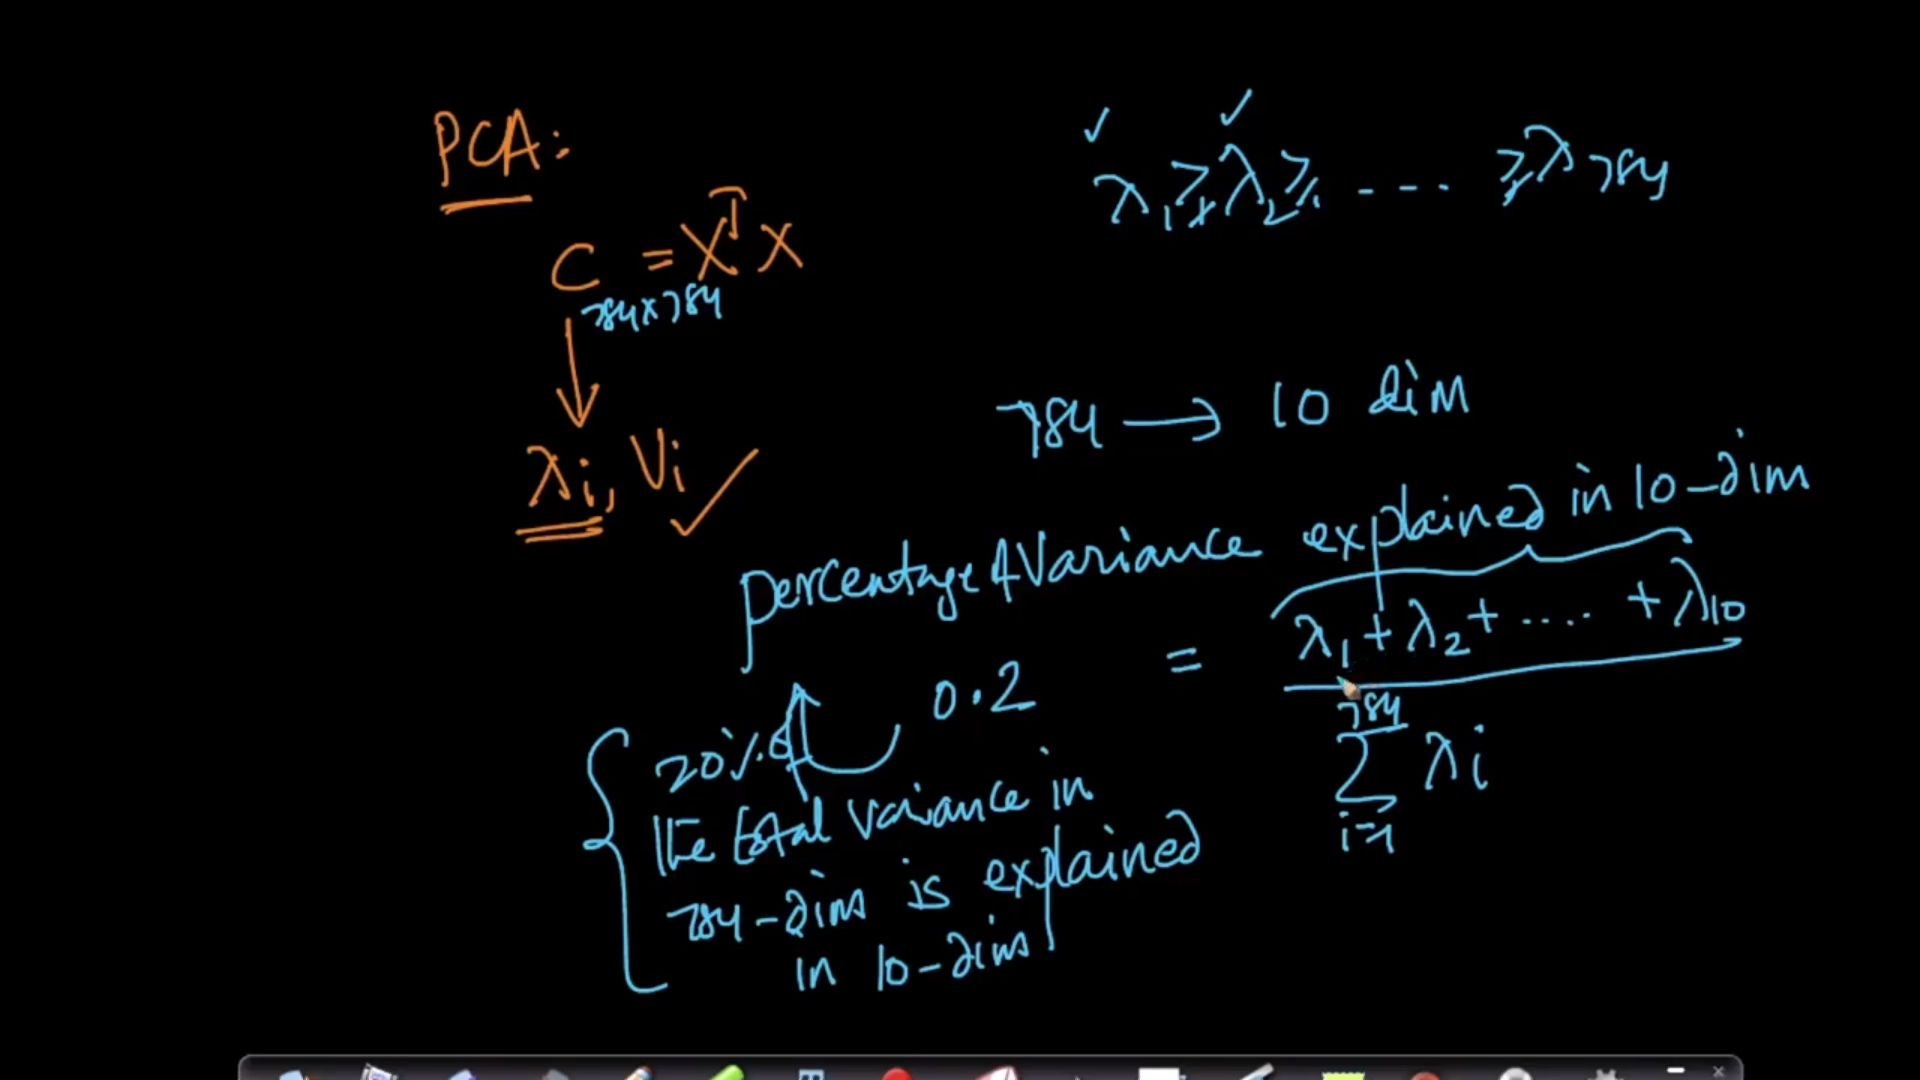 PCA:
λ1 ≥ λ2 ≥ ---- ≥ λ784
C = X^T X
784x784
λi, Vi
784 → 10 dim
percentage of variance explained in 10-dim
= λ1 + λ2 + .... + λ10
784
Σ λi
i=1
0.2
20% of
the total variance in
784-dims is explained
in 10-dims